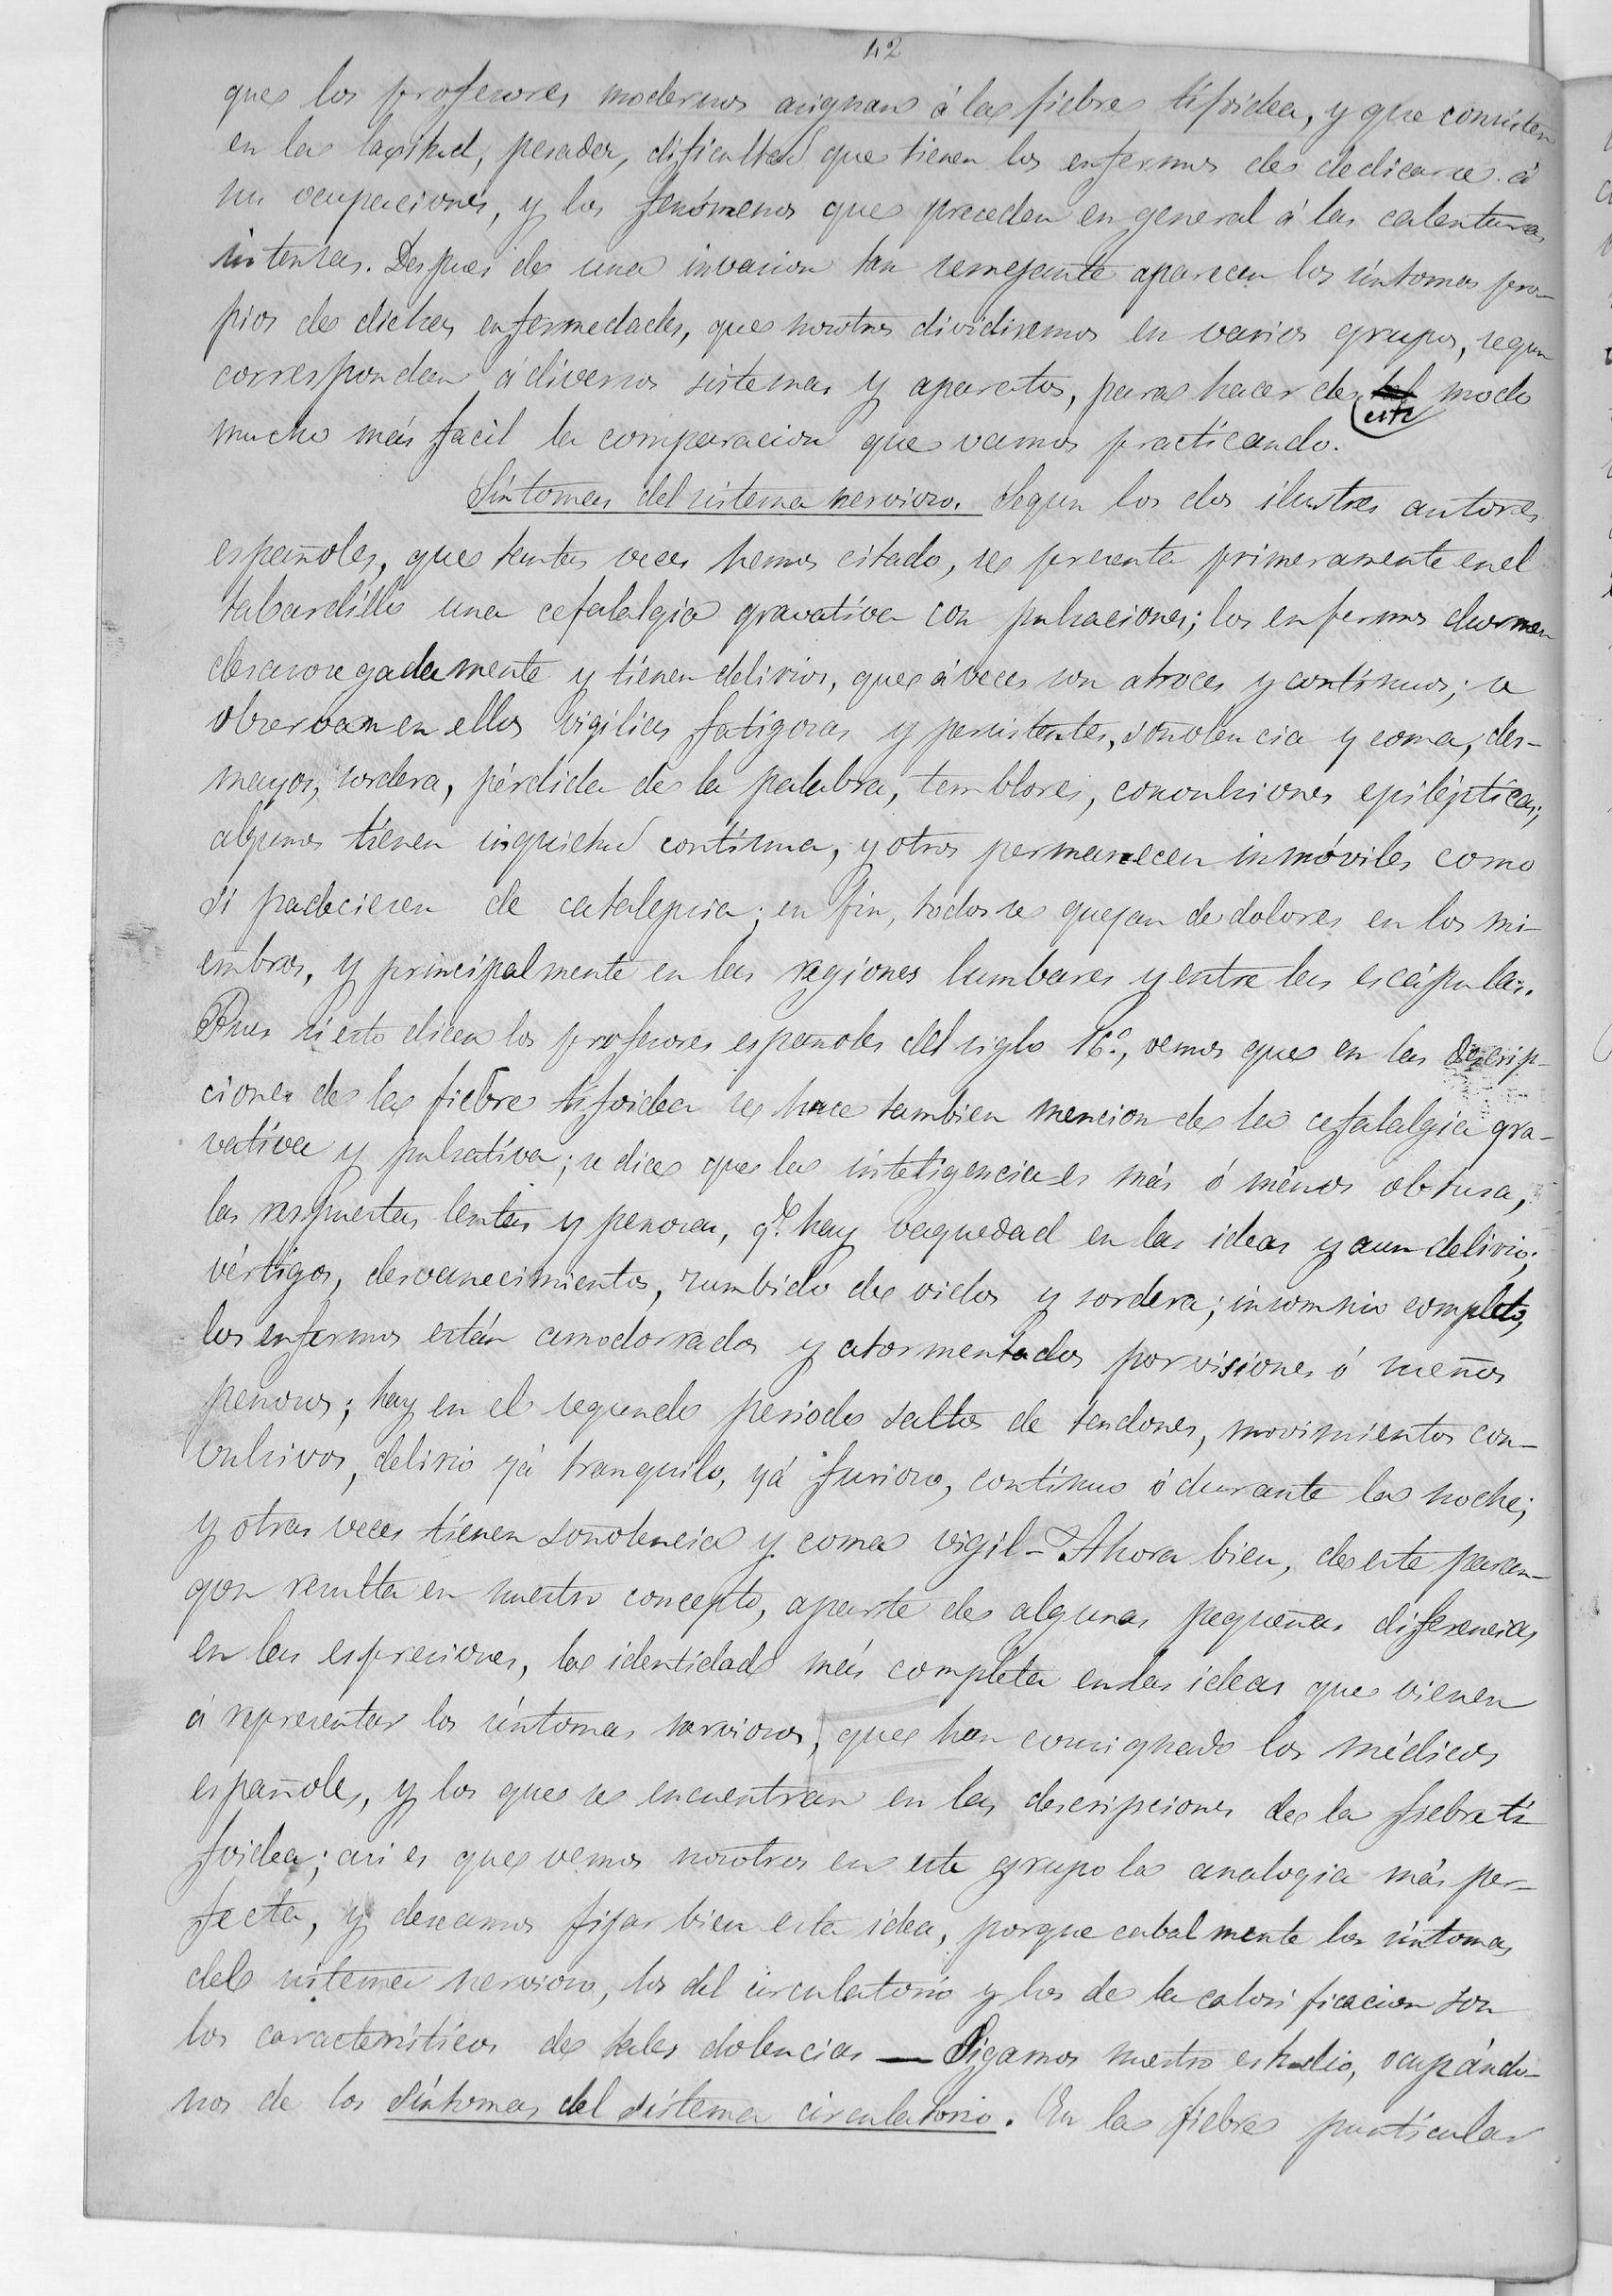 42
que los profesores modernos asignan á la fiebre tifoidea, y que consisten
en la laxitud, pesadez, dificultad que tienen los enfermos de dedicarse á
sus ocupaciones, y los fenómenos que preceden en general á las calenturas
intensas. Despues de una invasion tan semejante aparecen los síntomas pro-
pios de dichas enfermedades, que nosotros dividiremos en varios grupos, segun
correspondan á diversos sistemas y aparatos, para hacer de tal modo
este
mucho más facil la comparacion que vamos practicando.
Síntomas del sistema nervioso. Segun los dos ilustres autores
españoles, que tantas veces hemos citado, se presenta primeramente en el
tabardillo una cefalalgia gravativa con pulsaciones; los enfermos duermen
desasosegadamente y tienen delirios, que á veces son atroces y contínuos; se
observan en ellos vigilias fatigosas y persistentes, soñolencia y coma, des-
mayos, sordera, pérdida de la palabra, temblores, convulsiones epilépticas;
algunos tienen inquietud contínua, y otros permanecen inmóviles como
si padeciesen de catalepsia; en fin, todos se quejan de dolores en los mi-
embros, y principalmente en las regiones lumbares y entre las escápulas.
Pues si esto dicen los profesores españoles del siglo 16.º, vemos que en las descrip-
ciones de la fiebre tifoidea se hace tambien mencion de la cefalalgia gra-
vativa y pulsativa; se dice que la inteligencia es más ó ménos obtusa,
las respuestas lentas y penosas, q.e hay vaguedad en las ideas y aun delirio;
vértigos, desvanecimientos, zumbido de oidos y sordera; insomnio completo,
los enfermos están amodorrados y atormentados por visiones ó sueños
penosos; hay en el segundo periodo saltos de tendones, movimientos con-
vulsivos, delirio yá tranquilo, yá furioso, contínuo ó durante la noche;
y otras veces tienen soñolencia y coma vigil - Ahora bien, de este paran-
gon resulta en nuestro concepto, aparte de algunas pequeñas diferencias
en las espresiones, la identidad más completa en las ideas que vienen
á representar los síntomas nerviosos, que han consignado los médicos
españoles, y los que se encuentran en las descripciones de la fiebre ti-
foidea; asi es que vemos nosotros en este grupo la analogia más per-
fecta, y deseamos fijar bien esta idea, porque cabalmente los síntomas
del sistema nervioso, los del circulatorio y los de la calorificacion son
los característicos de tales dolencias — Sigamos nuestro estudio, ocupándo-
nos de los síntomas del sistema circulatorio. En la fiebre punticular